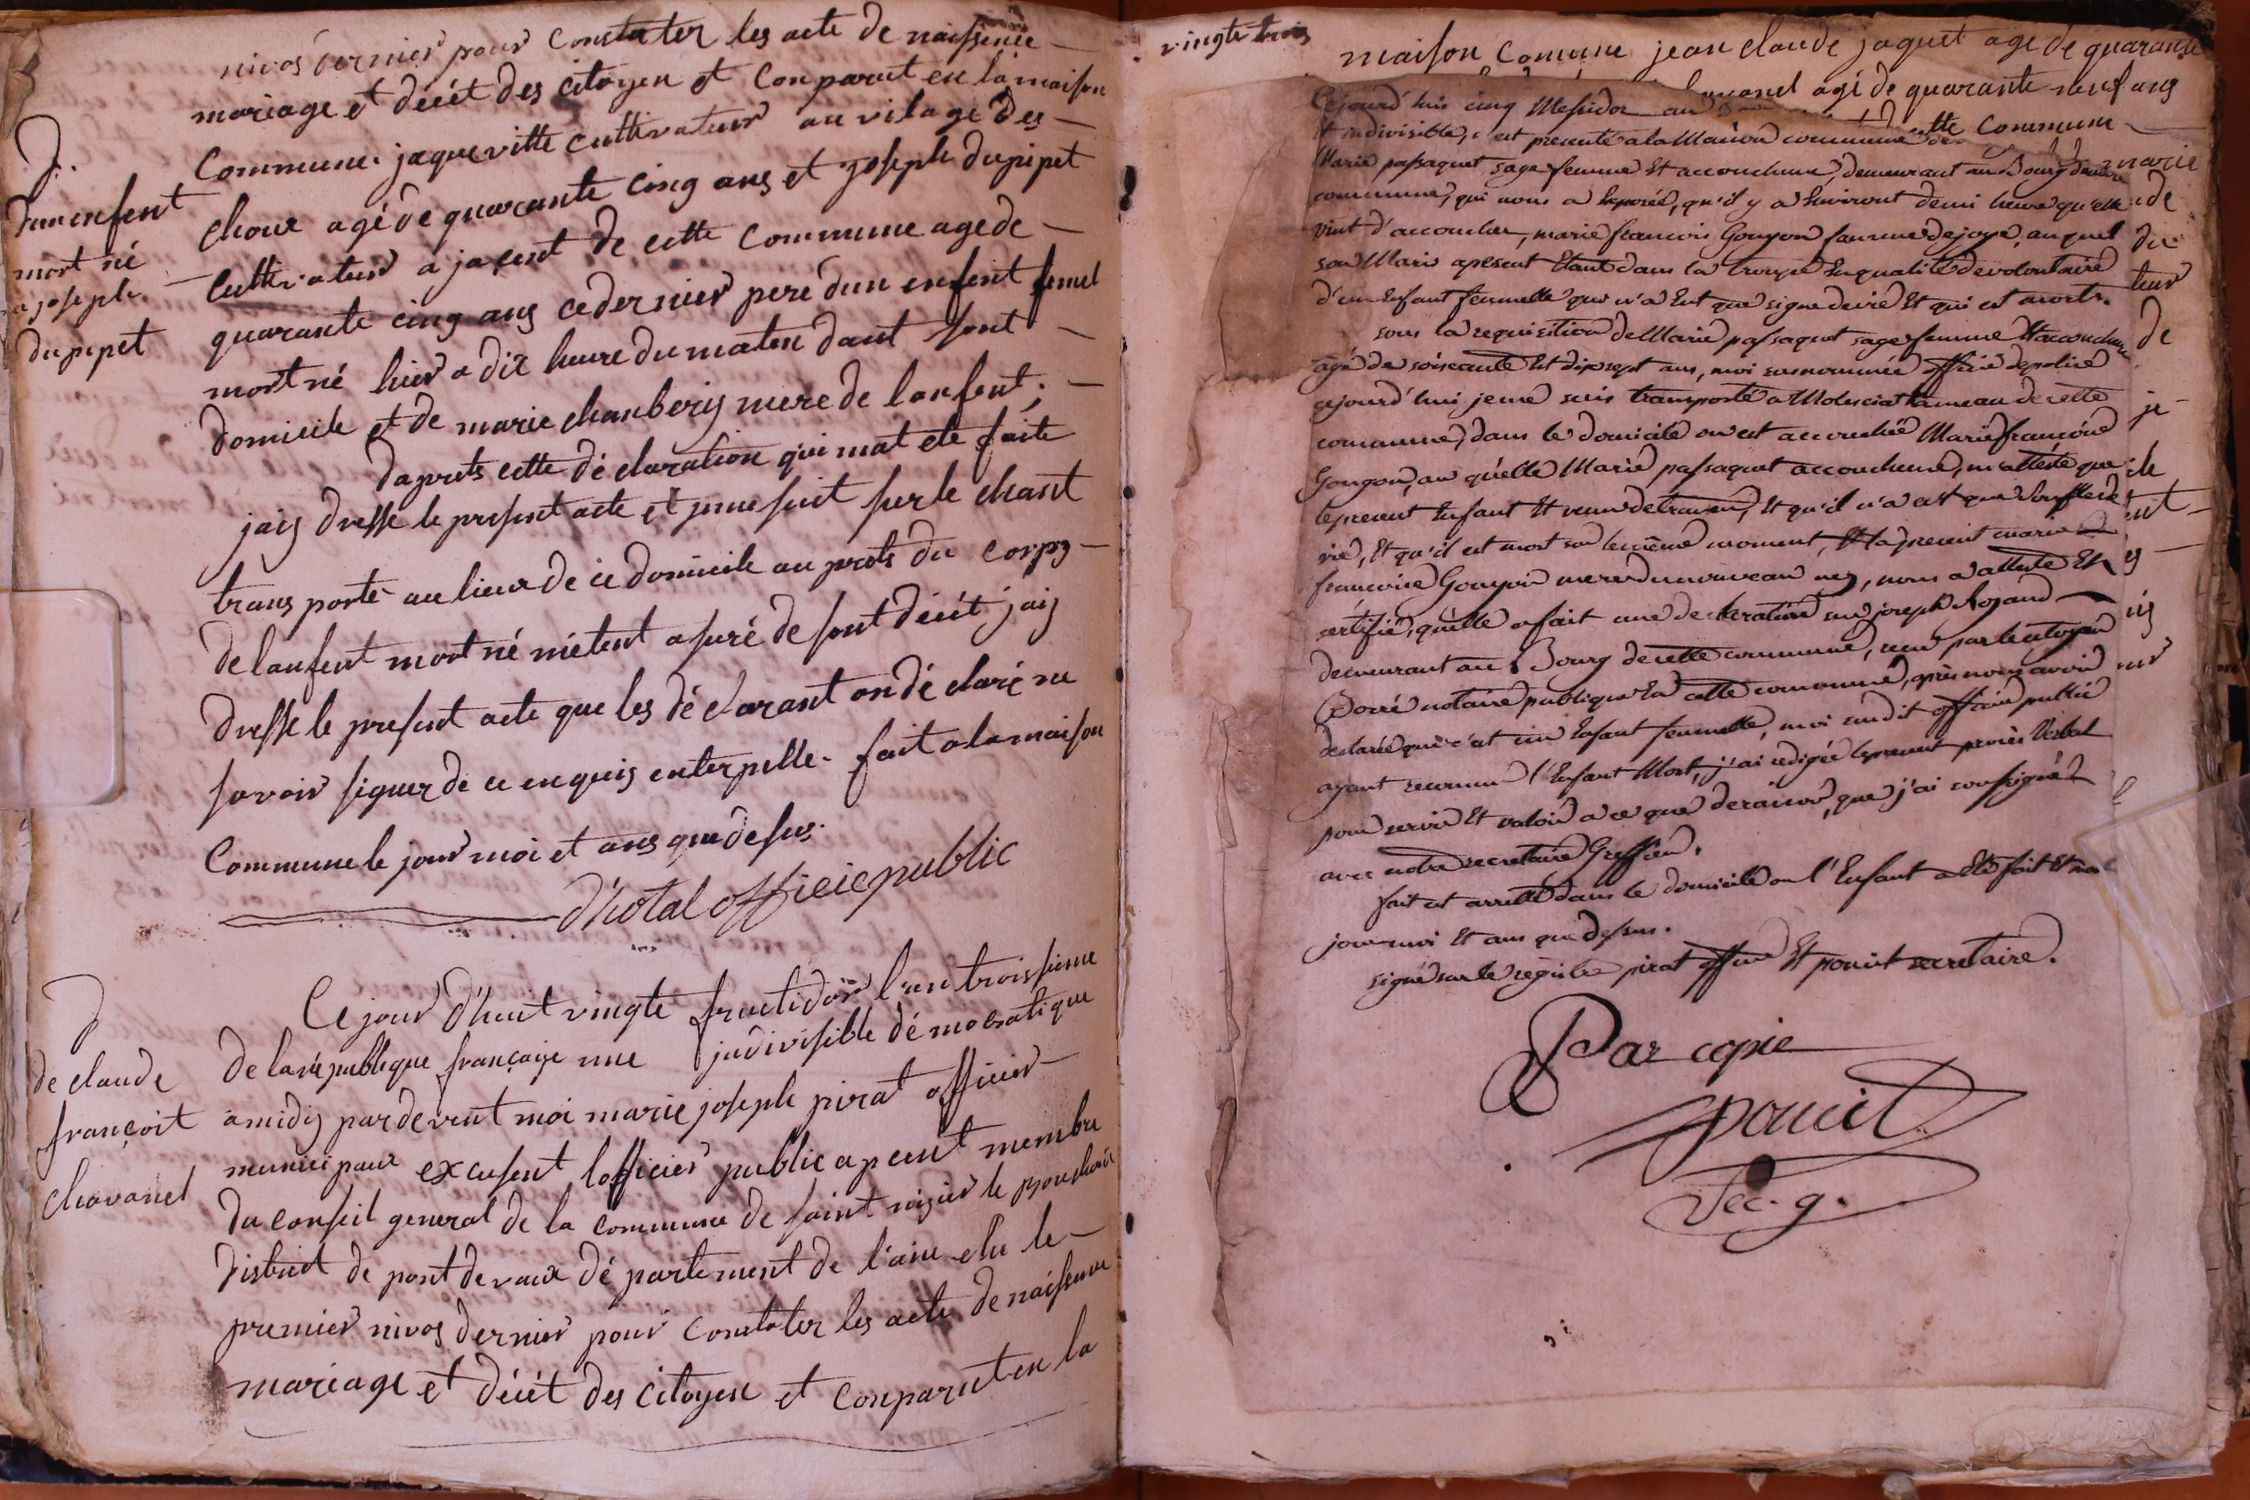 nivos dernier pour constater les acte de naissence
mariage et décét des citoyen et conparut en la maison
D.
commune jaque vitte cultivateur au vilage des
dun enfent
choux agé de quarante cinq ans et joseph dupipet
mort né
cultivateur a jasent de cette commune age de
a joseph
quarante cinq ans ce dernier peré dun enfent femel
dupipet
mort né hier a dix heure du maten dant sont
domicile et de marie chanbery mere de lanfent;
daprets cette déclaration qui mat ete faite
jais dresse le present acte et jeme suit sur le chant
transporté au lieux de ce domicile au prets du corps
de lanfent mort né métent asuré de sont décét jais
dresse le present acte que les déclarant on déclaré ne
savoir signer de ce enquis enterpelle. fait a la maison
commune le jour moi et ans que desus.
d'hotal officie public
D
Ce jour d'huit vingte fructidor l'an troissieme
de claude
de la republique françaize une indivisible démocratique
françoit
a midy par devent moi marie joseph pirat officier
chavanel
municipaux excusent lofficier public apcent membre
du conseil general de la commune de saint nizier le bouchoux
district de pont de vaux département de l'ain elu le
premier nivos dernier pour constater les acte de naissence
mariage et décét des citoyen et conparut en la
vingte trois
maison comune jean claude jaquet age de quarante
agé de quarante neuf ans
cette commune
marie
Cejourd'huis cinq Messidor an
et indivisible, c'est presenté a la Maison commune de
Marie passaquet sage femme Et accoucheuse, demeurant au Bourg de notre
commune, qui nous a exposée, qu'il y a Environt demi heure qu'elle
vint d'accoucher, marie francoise Gouyon femme dejoye, au quel
son Maris apresent Etant dans la troupe En qualité de volontaire
d'un Enfant femmelle qui n'a Eut que signe de vie Et qui est morte.
sous la requisition de Marie passaquet sage femme Et accoucheuse
agé de soisceante Et dix sept ans, moi susnommée officié de police
aujourd'hui jeme suis transporté a Moluciat hameau de cette
commune, dans le domicile ou est accouchée Marie francoise
Gougon, au quelle Marie passaquet accoucheuse, m'atteste que
le present Enfant Et venu de travers, Et qu'il n'a eut que souffle de
vie, Et qu'il est mort sur le même moment, Et la present marie
francoise Gouyon mere du nouveau nez, nous a attesté Et
sertifié, qu'elle a fait une declaration sur joseph Rozand
demeurant au Bourg de cette commune, receu par le citoyen
Borré notaire publique En cette commune, après nous avoir
declarée que c'est un Enfant femmelle, moi susdit officie public
ayant reconnu l'Enfant Mort, j'ai redigée le present procès Verbal
pour servir Et valoir a ce que de raison, que j'ai consigné
avec notre secretaire Greffier.
fait est arretté dans le domicile ou l'Enfant a Eté fait Et mort
jour moi Et ans que dessus.
signé sur le registre pirat officié Et poncit secretaire.
Par copie
poncit
sec. g.